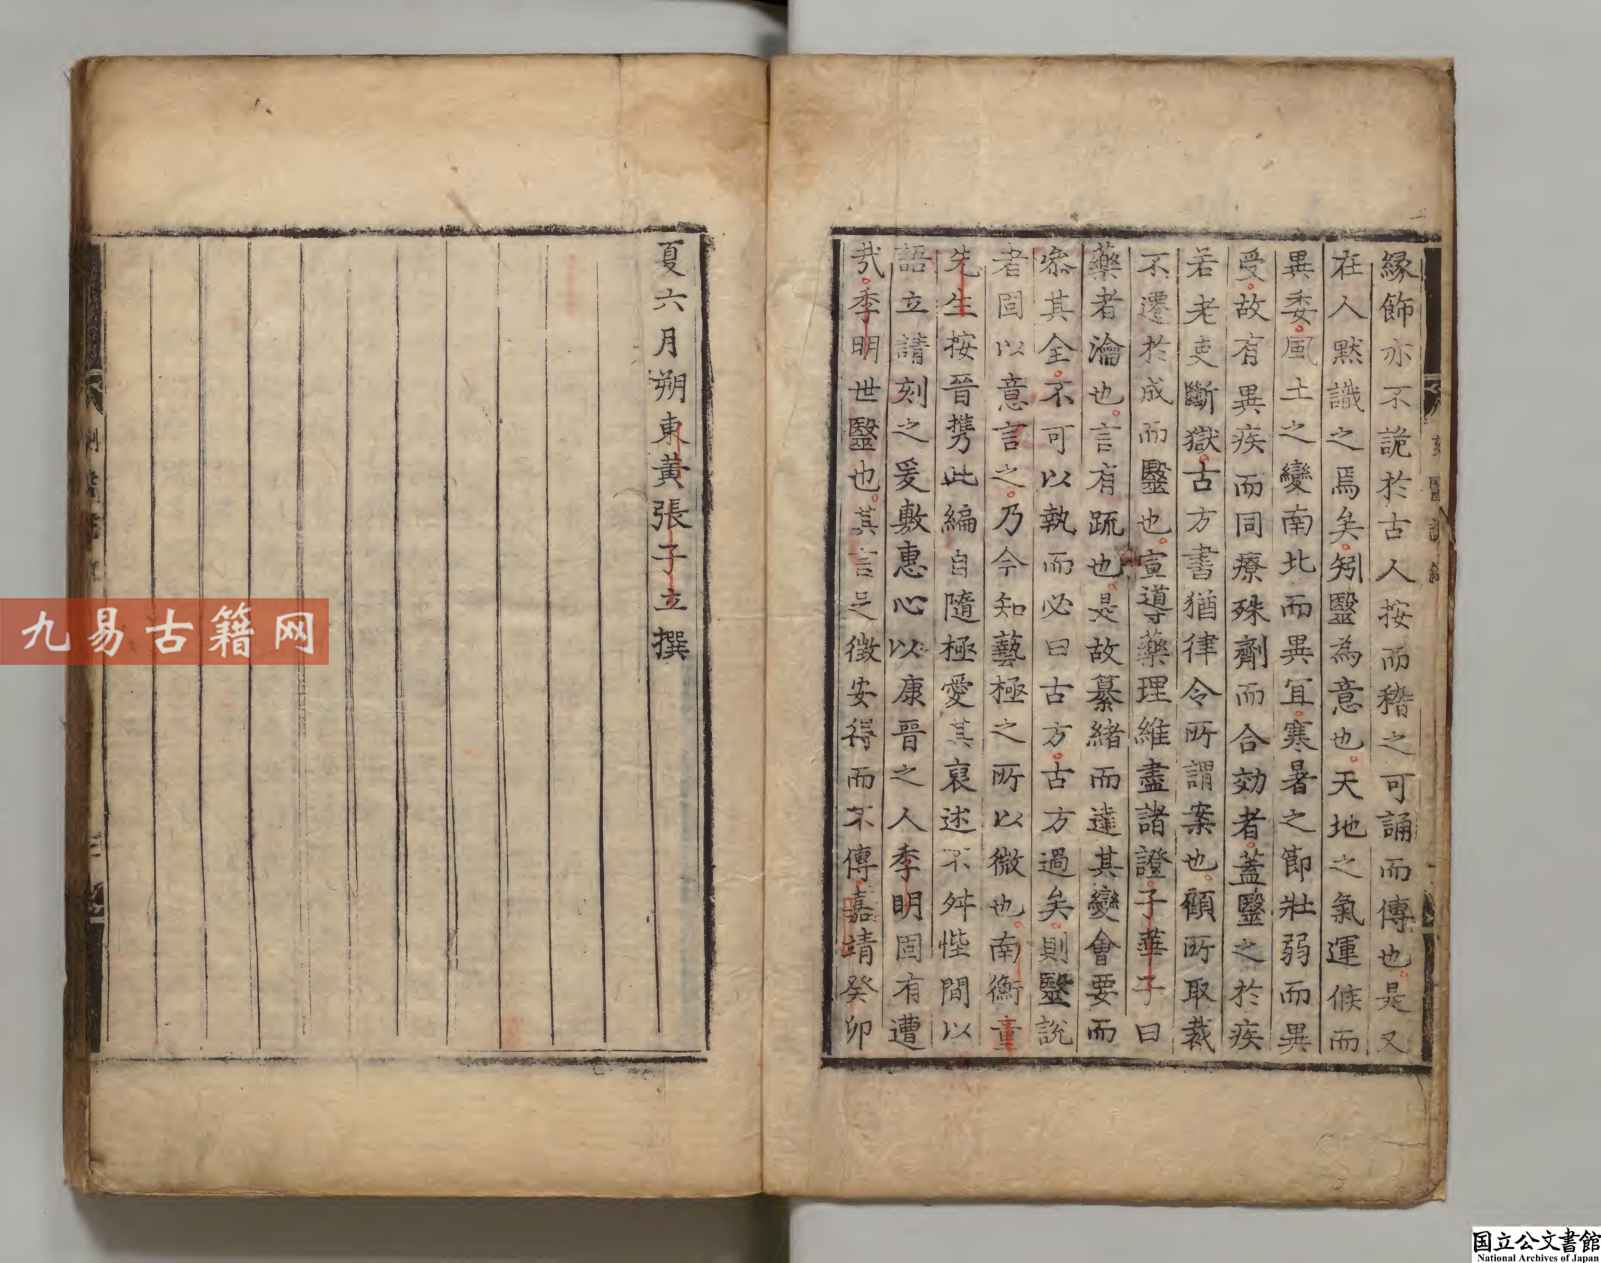 緣飾亦不詭於古人按而稽之可誦而傳也是又
在人黙識之焉矣矧毉為意也天地之氣運候而
異委風土之變南北而異冝寒暑之節壯弱而異
受故有異疾而同療殊劑而合効者蓋毉之於疾
若老吏斷獄古方書猶律令所謂案也顧所取裁
不遷於成而毉也宣導藥理維盡諸證子華子曰
藥者瀹也言有䟽也是故纂緒而達其變會要而
叅其全不可以執而必曰古方古方過矣則毉説
者固以意言之乃今知藝極之所以微也南衡童
先生按晉携此編自隨極愛其裒述不舛恠間以
語立請刻之爰敷惠心以康晉之人季明固有遭
㢤季明世毉也其言足徴安得而不傳嘉靖癸卯
夏六月朔東黄張子立撰
九易古籍网
国立公文書館
National Archives of Japan